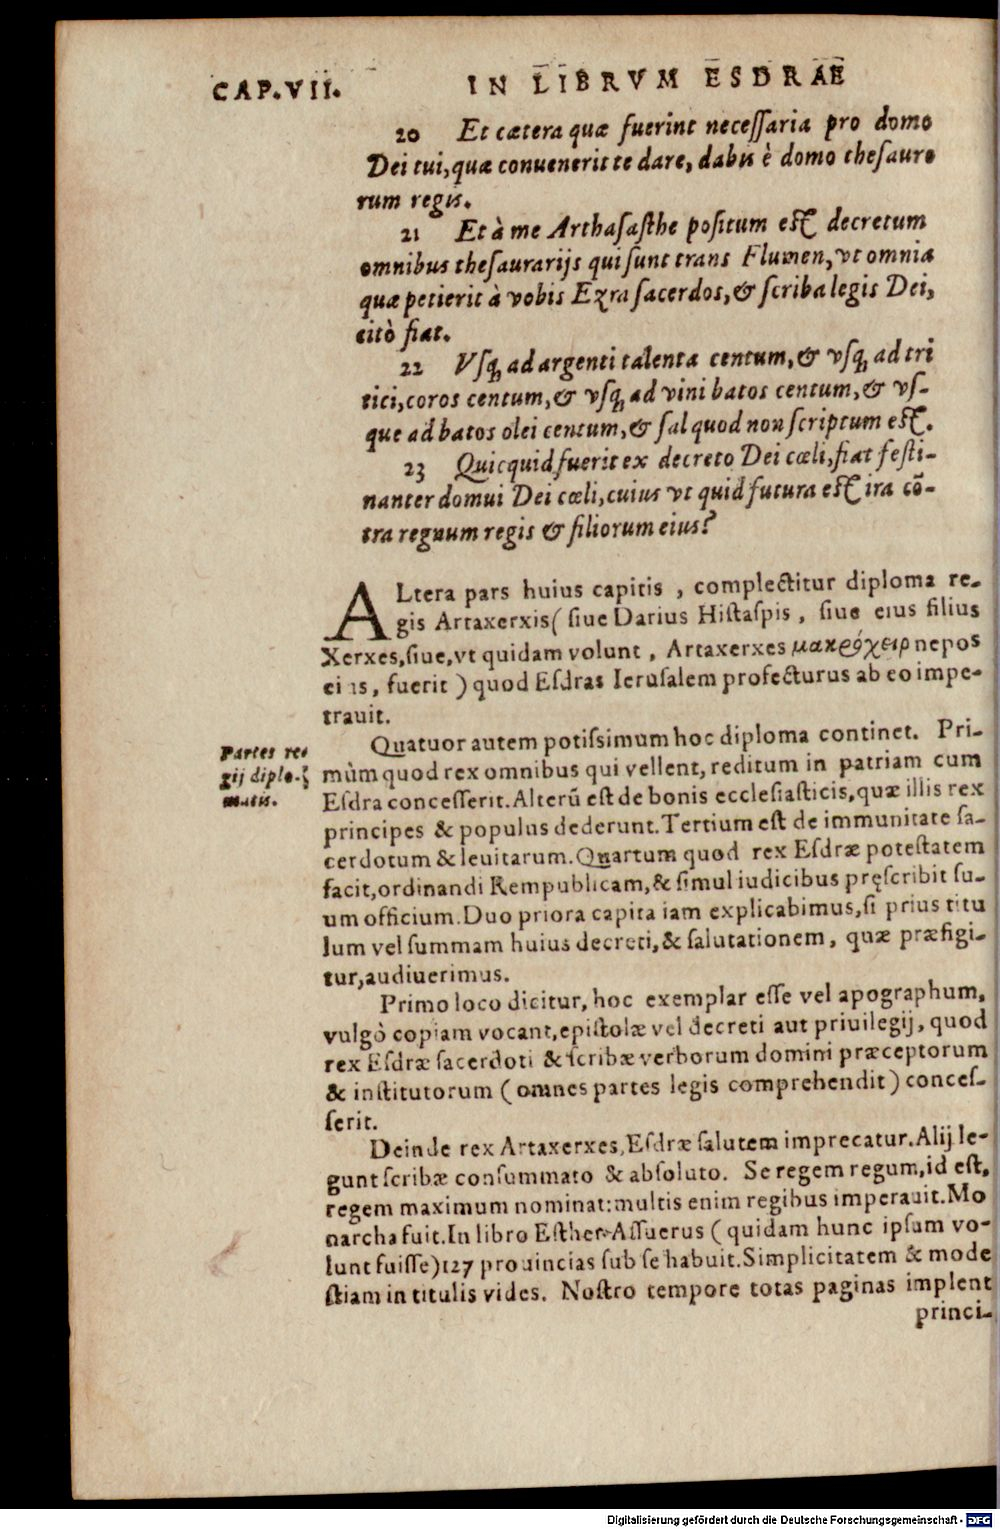 CAP.VII. IN LIBRVM ESDRAE
20 Et cætera quæ fuerint necessaria pro domo
Dei tui, quæ conuenerit te dare, dabis è domo thesauro
rum regis.
21 Et à me Arthasasthe positum est decretum
omnibus thesaurarijs qui sunt trans Flumen, vt omnia
quæ petierit à vobis Ezra sacerdos, & scriba legis Dei,
citò fiat.
22 Vsq; ad argenti talenta centum, & vsq; ad tri
tici, coros centum, & vsq; ad vini batos centum, & vs-
que ad batos olei centum, & sal quod non scriptum est.
23 Quicquid fuerit ex decreto Dei cœli, fiat festi-
nanter domui Dei cœli, cuius vt quid futura est ira cō-
tra regnum regis & filiorum eius?
ALtera pars huius capitis, complectitur diploma re-
gis Artaxerxis (siue Darius Histaspis, siue eius filius
Xerxes, siue, vt quidam volunt, Artaxerxes μακρόχειρ nepos
eius, fuerit) quod Esdras Ierusalem profecturus ab eo impe-
trauit.
Partes re-
gij diplo-
matis.
Quatuor autem potissimum hoc diploma continet. Pri-
mùm quod rex omnibus qui vellent, reditum in patriam cum
Esdra concesserit. Alterũ est de bonis ecclesiasticis, quæ illis rex
principes & populus dederunt. Tertium est de immunitate sa-
cerdotum & leuitarum. Quartum quod rex Esdræ potestatem
facit, ordinandi Rempublicam, & simul iudicibus pręscribit su-
um officium. Duo priora capita iam explicabimus, si prius titu
lum vel summam huius decreti, & salutationem, quæ præfigi-
tur, audiuerimus.
Primo loco dicitur, hoc exemplar esse vel apographum,
vulgò copiam vocant, epistolæ vel decreti aut priuilegij, quod
rex Esdræ sacerdoti & scribæ verborum domini præceptorum
& institutorum (omnes partes legis comprehendit) conces-
serit.
Deinde rex Artaxerxes, Esdræ salutem imprecatur. Alij le-
gunt scribæ consummato & absoluto. Se regem regum, id est,
regem maximum nominat: multis enim regibus imperauit. Mo
narcha fuit. In libro Esther Assuerus (quidam hunc ipsum vo-
lunt fuisse) 127 prouincias sub se habuit. Simplicitatem & mode
stiam in titulis vides. Nostro tempore totas paginas implent
princi-
Digitalisierung gefördert durch die Deutsche Forschungsgemeinschaft - DFG